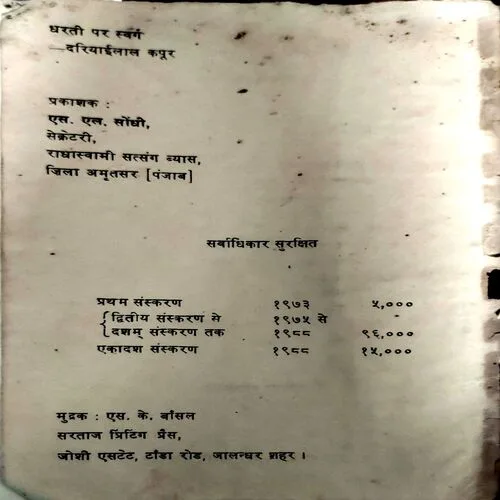 धरती पर स्वर्ग
—दरियाईलाल कपूर
प्रकाशक :
एस. एल. सोंधी,
सेक्रेटरी,
राधास्वामी सत्संग ब्यास,
ज़िला अमृतसर [पंजाब]
सर्वाधिकार सुरक्षित
प्रथम संस्करण १९७३ ५,०००
द्वितीय संस्करण से १९७५ से
दशम् संस्करण तक १९८८ ९६,०००
एकादश संस्करण १९८८ १५,०००
मुद्रक : एस. के. बाँसल
सरताज प्रिंटिंग प्रैस,
जोशी एसटेट, टाँडा रोड, जालन्धर शहर ।